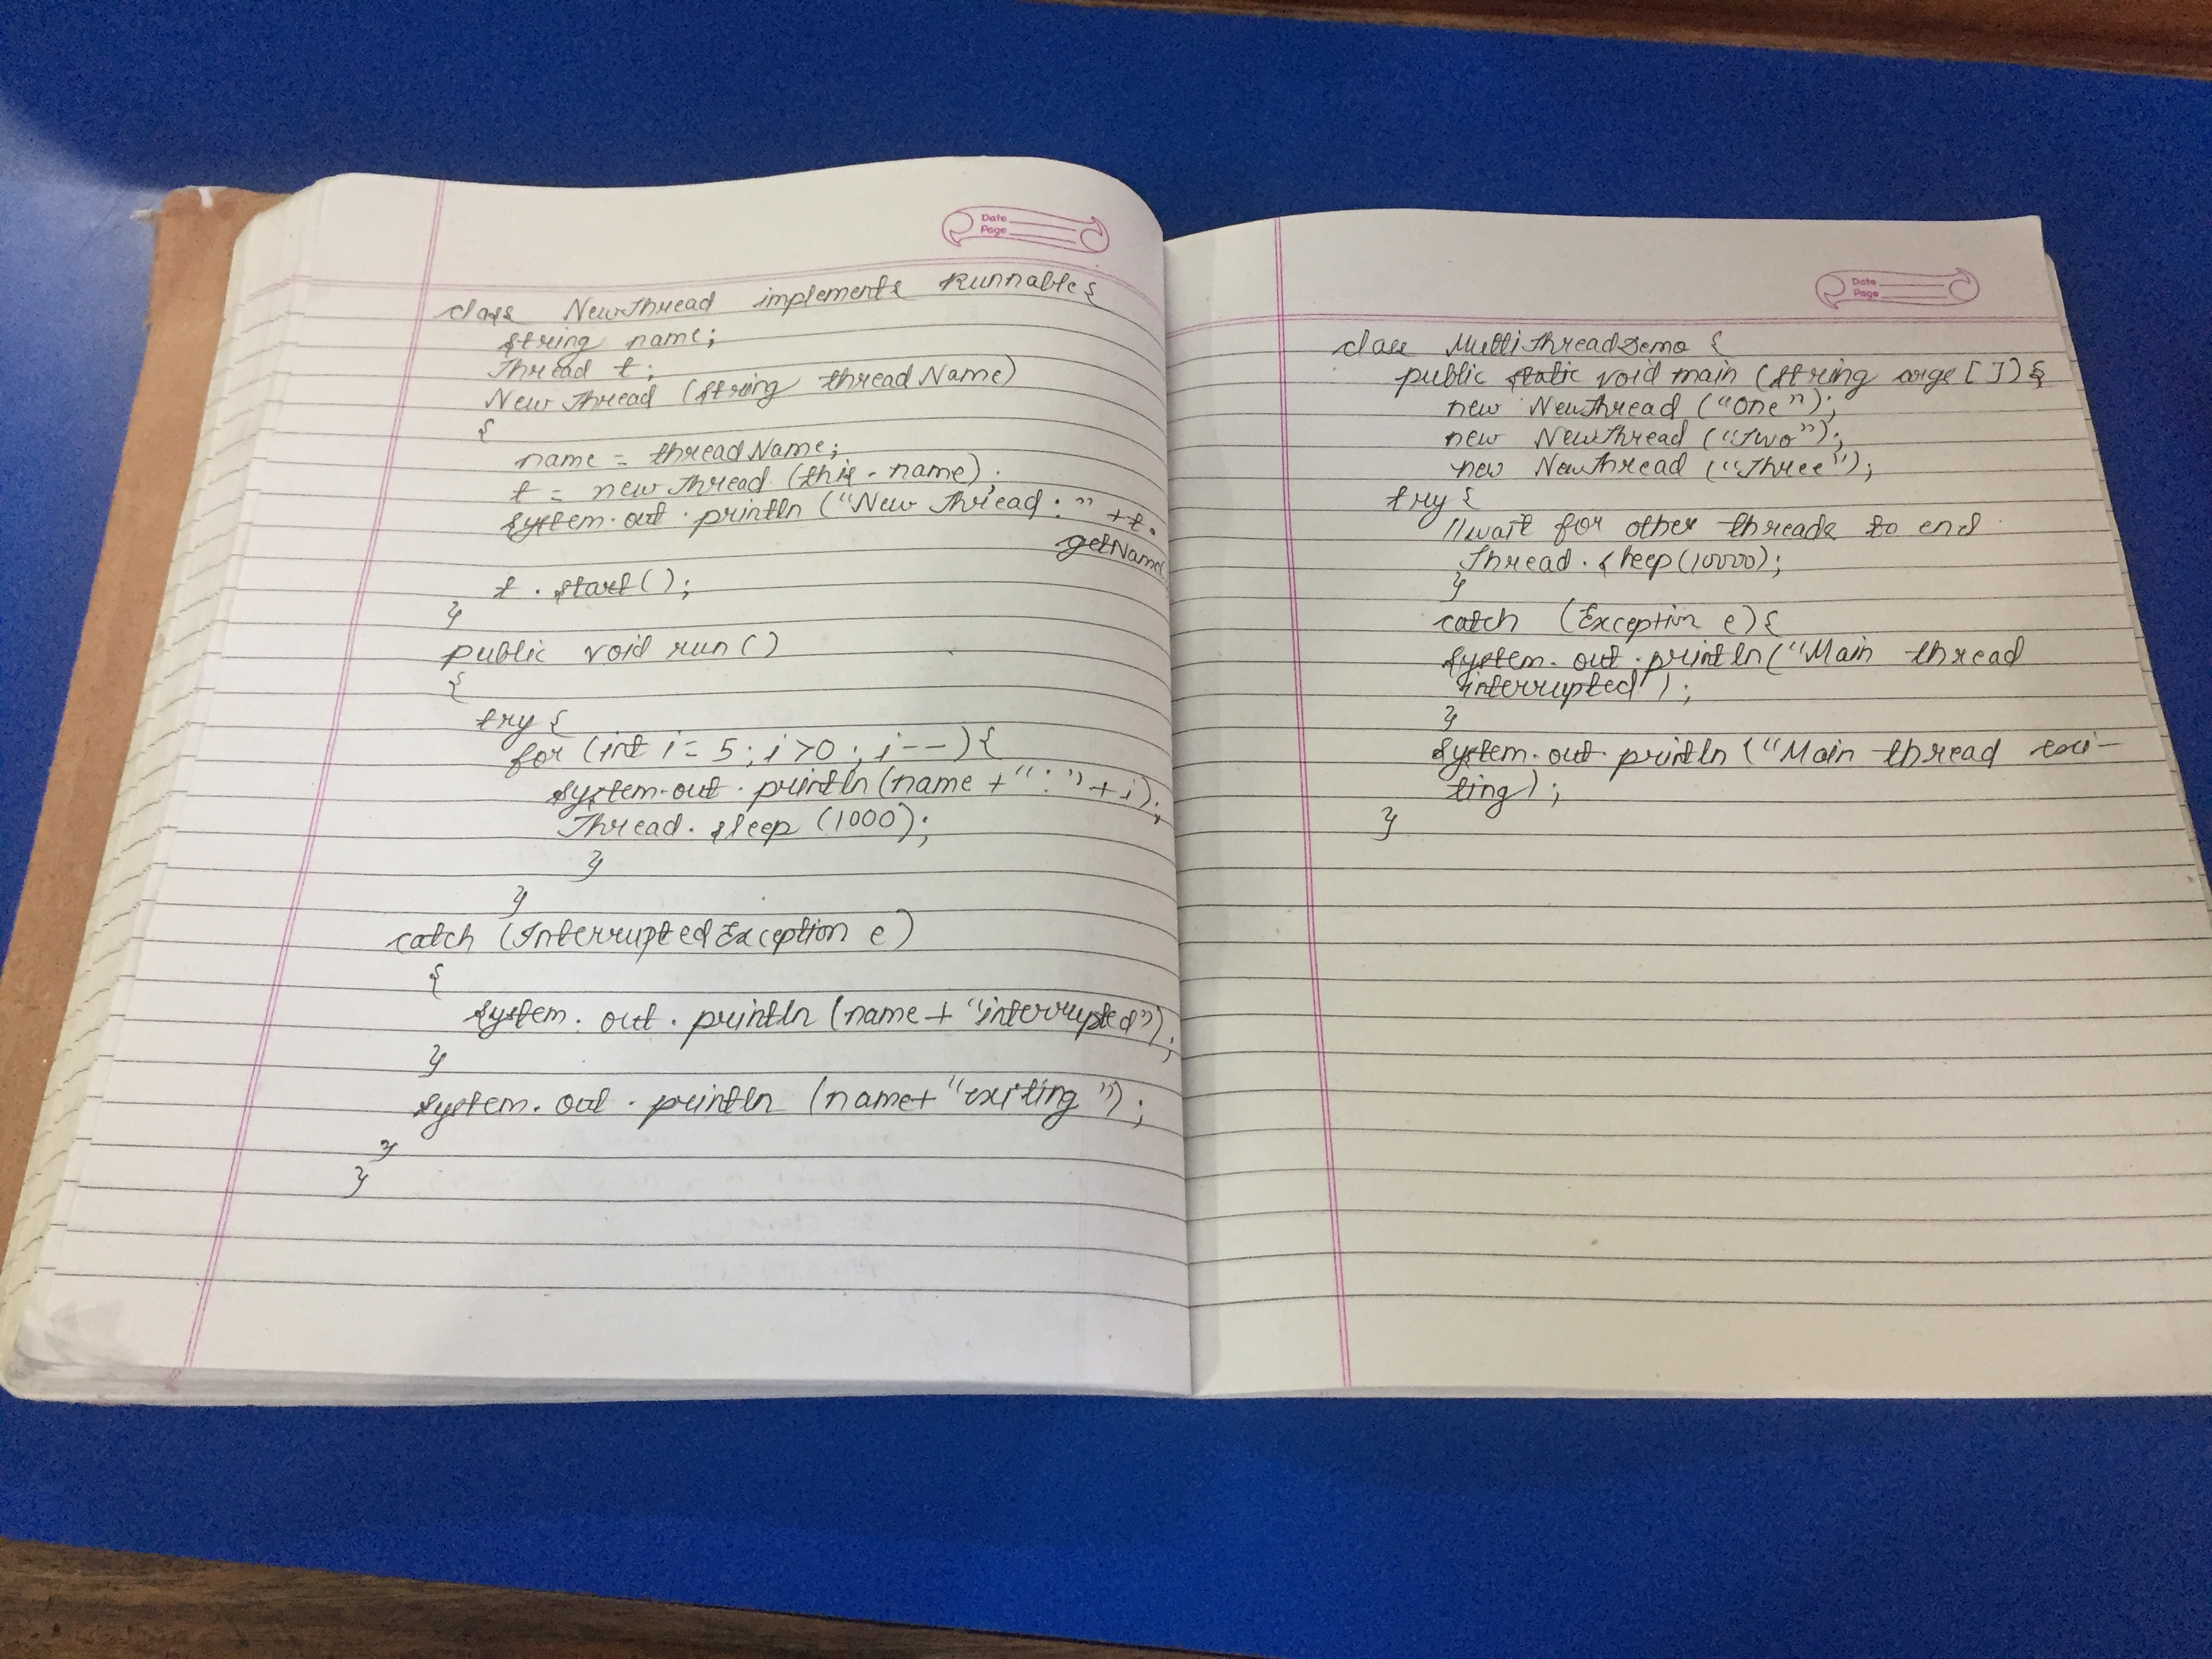 Date
Page
class Newthread implements Runnable{
String name;
Thread t;
Newthread (String threadName)
{
name = threadName;
t = newthread (this.name);
System.out.println ("New thread:" +t.
getName
t.start();
}
public void run()
{
try{
for (int i= 5; i>0; i--){
System.out.println(name +":"+i);
Thread.sleep (1000);
}
}
catch (InterruptedException e)
{
System.out.println (name+"interrupted");
}
System.out.println (name+"exiting");
}
}
Date
Page
class MultithreadDemo {
public static void main (String args[]){
new Newthread ("one");
new Newthread ("two");
new Newthread ("three");
try{
//wait for other threads to end.
Thread.sleep(10000);
}
catch (Exception e){
System.out.println("Main thread
interrupted");
}
System.out.println ("Main thread exi-
ting);
}